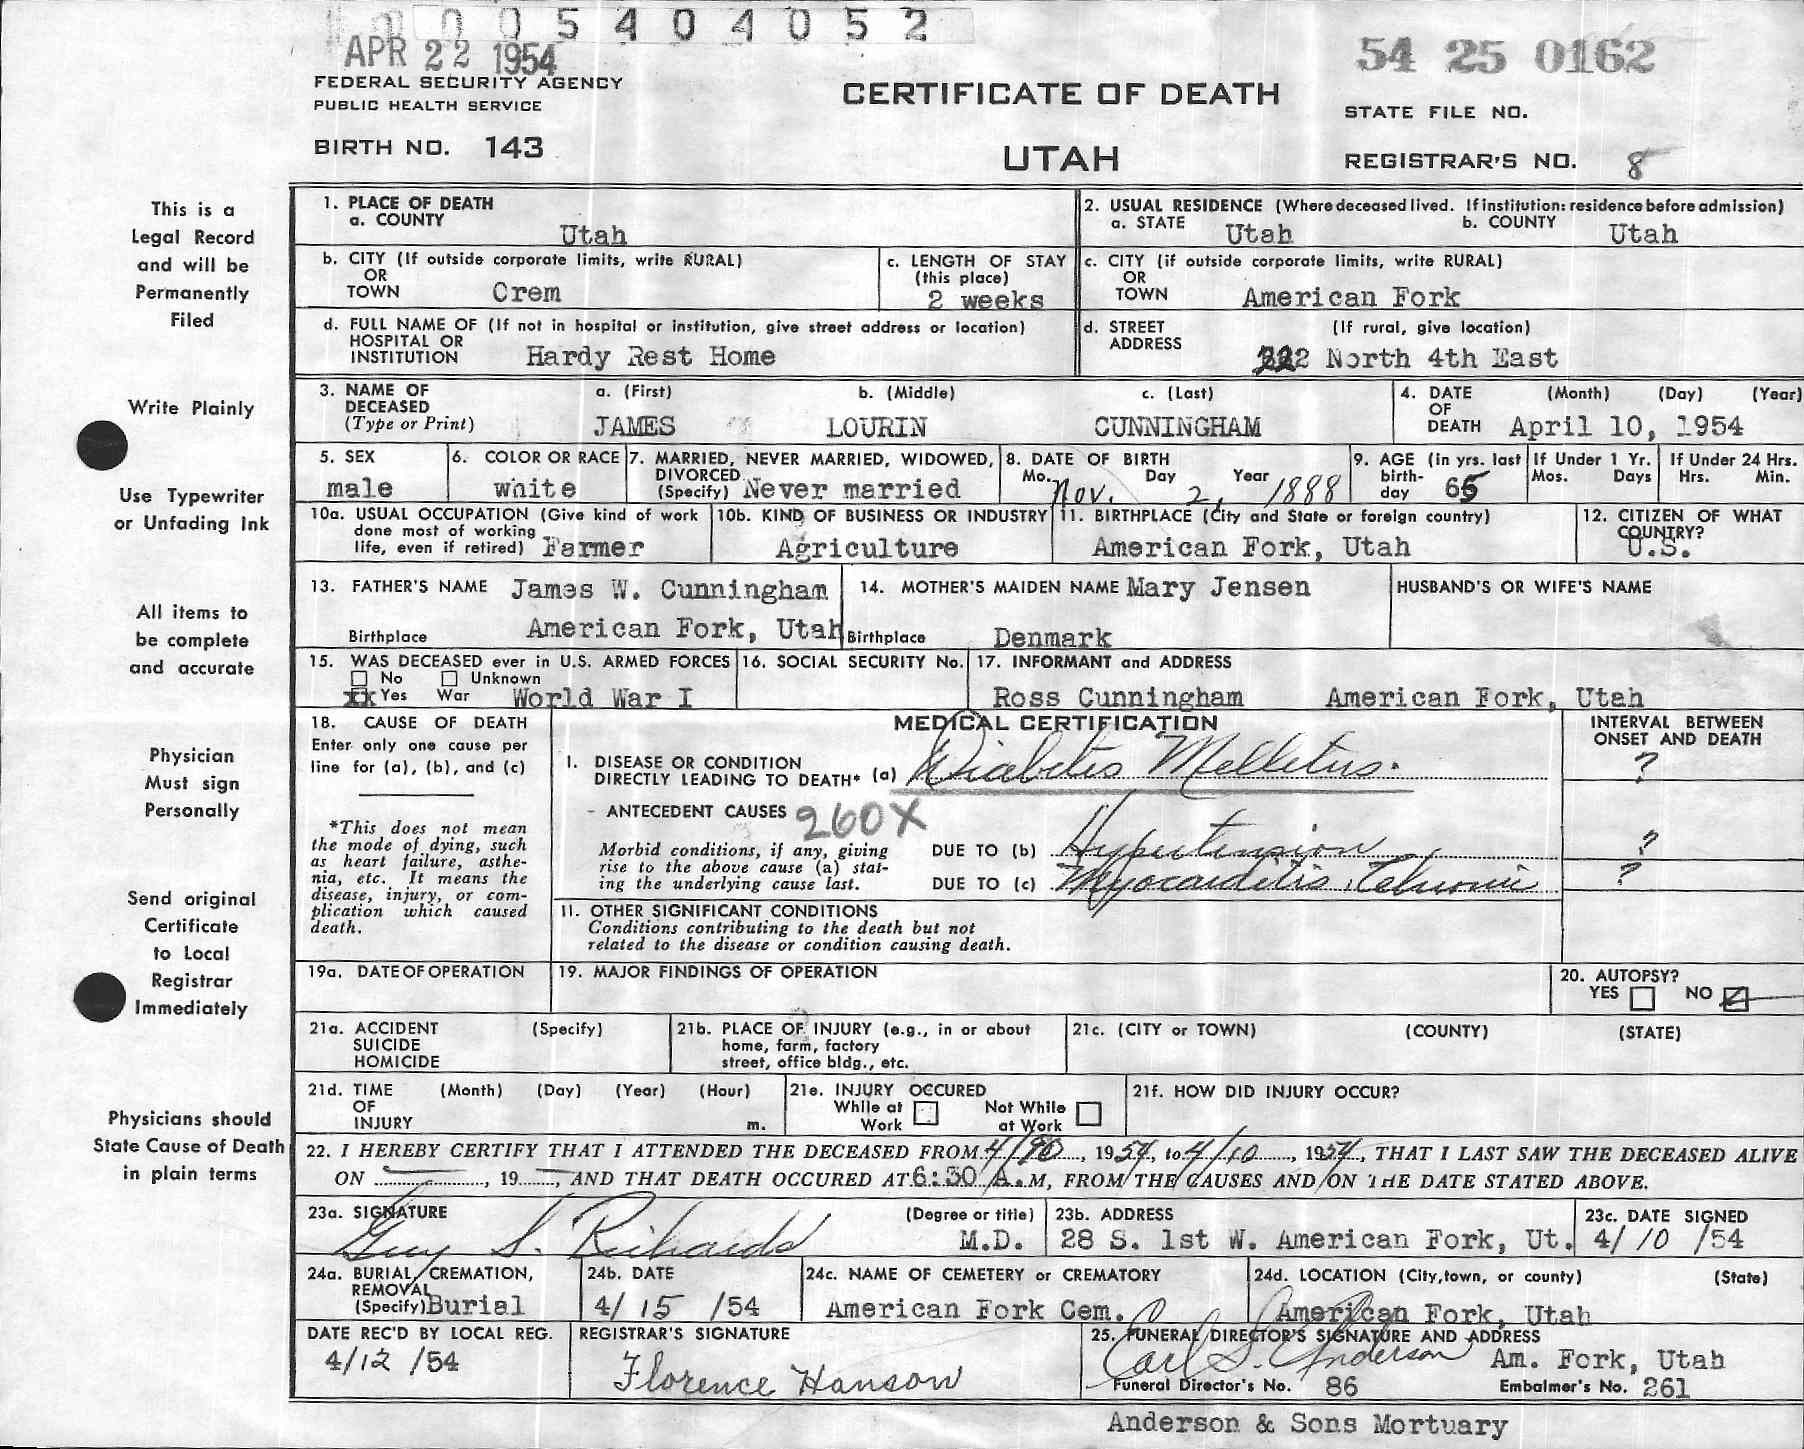 0 0 5 4 0 4 0 5 2
APR 22 1954
54 25 0162
FEDERAL SECURITY AGENCY
PUBLIC HEALTH SERVICE
CERTIFICATE OF DEATH
STATE FILE NO.
BIRTH NO. 143
UTAH
REGISTRAR'S NO. 8
This is a
Legal Record
and will be
Permanently
Filed
Write Plainly
Use Typewriter
or Unfading Ink
All items to
be complete
and accurate
Physician
Must sign
Personally
Send original
Certificate
to Local
Registrar
Immediately
Physicians should
State Cause of Death
in plain terms
1. PLACE OF DEATH
a. COUNTY
Utah
2. USUAL RESIDENCE (Where deceased lived. If institution: residence before admission)
a. STATE Utah b. COUNTY Utah
b. CITY (If outside corporate limits, write RURAL)
OR
TOWN Crem
c. LENGTH OF STAY
(this place)
2 weeks
c. CITY (if outside corporate limits, write RURAL)
OR
TOWN American Fork
d. FULL NAME OF (If not in hospital or institution, give street address or location)
HOSPITAL OR
INSTITUTION Hardy Rest Home
d. STREET (If rural, give location)
ADDRESS
North 4th East
3. NAME OF a. (First) b. (Middle) c. (Last)
DECEASED
(Type or Print) JAMES LOURIN CUNNINGHAM
4. DATE (Month) (Day) (Year)
OF
DEATH April 10, 1954
5. SEX
male
6. COLOR OR RACE
white
7. MARRIED, NEVER MARRIED, WIDOWED,
DIVORCED
(Specify) Never married
8. DATE OF BIRTH
Mo. Day Year
Nov. 2, 1888
9. AGE (in yrs. last
birth-
day 65
If Under 1 Yr.
Mos. Days
If Under 24 Hrs.
Hrs. Min.
10a. USUAL OCCUPATION (Give kind of work
done most of working
life, even if retired) Farmer
10b. KIND OF BUSINESS OR INDUSTRY
Agriculture
11. BIRTHPLACE (City and State or foreign country)
American Fork, Utah
12. CITIZEN OF WHAT
COUNTRY?
U.S.
13. FATHER'S NAME James W. Cunningham
Birthplace American Fork, Utah
14. MOTHER'S MAIDEN NAME Mary Jensen
Birthplace Denmark
HUSBAND'S OR WIFE'S NAME
15. WAS DECEASED ever in U.S. ARMED FORCES
No Unknown
xx Yes War World War I
16. SOCIAL SECURITY No.
17. INFORMANT and ADDRESS
Ross Cunningham American Fork, Utah
18. CAUSE OF DEATH
Enter only one cause per
line for (a), (b), and (c)
*This does not mean
the mode of dying, such
as heart failure, asthe-
nia, etc. It means the
disease, injury, or com-
plication which caused
death.
MEDICAL CERTIFICATION
INTERVAL BETWEEN
ONSET AND DEATH
I. DISEASE OR CONDITION
DIRECTLY LEADING TO DEATH* (a) Diabetis Melletus. ?
ANTECEDENT CAUSES 260X
Morbid conditions, if any, giving
rise to the above cause (a) stat-
ing the underlying cause last.
DUE TO (b) Hypertension ?
DUE TO (c) Myocarditis, Chronic ?
11. OTHER SIGNIFICANT CONDITIONS
Conditions contributing to the death but not
related to the disease or condition causing death.
19a. DATE OF OPERATION
19. MAJOR FINDINGS OF OPERATION
20. AUTOPSY?
YES NO
21a. ACCIDENT (Specify)
SUICIDE
HOMICIDE
21b. PLACE OF INJURY (e.g., in or about
home, farm, factory
street, office bldg., etc.
21c. (CITY or TOWN) (COUNTY) (STATE)
21d. TIME (Month) (Day) (Year) (Hour)
OF
INJURY m.
21e. INJURY OCCURED
While at Not While
Work at Work
21f. HOW DID INJURY OCCUR?
22. I HEREBY CERTIFY THAT I ATTENDED THE DECEASED FROM 4/ , 1954, to 4/10, 1954, THAT I LAST SAW THE DECEASED ALIVE
ON , 19 , AND THAT DEATH OCCURED AT 6:30 A.M, FROM THE CAUSES AND ON THE DATE STATED ABOVE.
23a. SIGNATURE (Degree or title)
Guy S. Richards M.D.
23b. ADDRESS
28 S. 1st W. American Fork, Ut.
23c. DATE SIGNED
4/ 10 /54
24a. BURIAL, CREMATION,
REMOVAL
(Specify) Burial
24b. DATE
4/ 15 /54
24c. NAME OF CEMETERY or CREMATORY
American Fork Cem.
24d. LOCATION (City, town, or county) (State)
American Fork, Utah
DATE REC'D BY LOCAL REG.
4/12 /54
REGISTRAR'S SIGNATURE
Florence Hanson
25. FUNERAL DIRECTOR'S SIGNATURE AND ADDRESS
Carl S. Anderson Am. Fork, Utah
Funeral Director's No. 86 Embalmer's No. 261
Anderson & Sons Mortuary